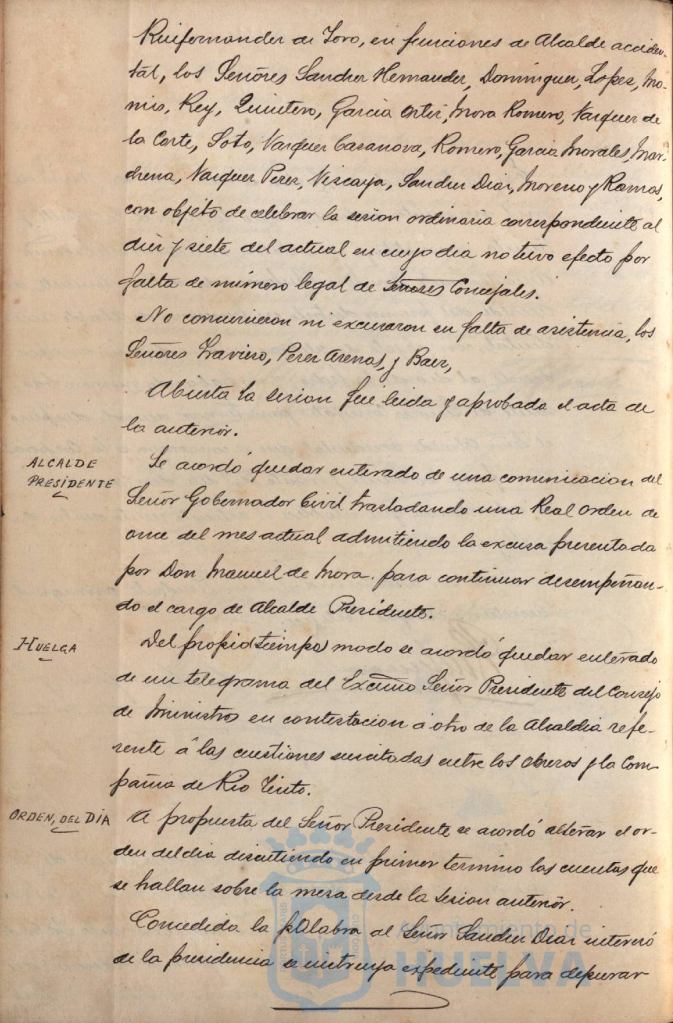 Ruifernandez de Toro, en funciones de Alcalde acciden-
tal, los Señores Sanchez Hernandez, Dominguez, Lopez, Mo-
nis, Rey, Quintero, Garcia Ortiz, Mora Romero, Vazquez de
la Corte, Soto, Vazquez Casanova, Romero, Garcia Morales, Mar-
chena, Vazquez Perez, Viscaya, Sanchez Diaz, Moreno y Ramos,
con objeto de celebrar la sesion ordinaria correspondiente al
diez y siete del actual en cuyo dia no tuvo efecto por
falta de número legal de Señores Concejales.
No concurrieron ni excusaron su falta de asistencia, los
Señores Perez Arenas, y Baez,
Abierta la sesion fue leida y aprobada el acta de
la anterior.
ALCALDE
PRESIDENTE
Se acordó quedar enterado de una comunicacion del
Señor Gobernador Civil trasladando una Real orden de
once del mes actual admitiendo la excusa presentada
por Don Manuel de Mora para continuar desempeñan-
do el cargo de Alcalde Presidente.
HUELGA
Del propio (tiempo) modo se acordó quedar enterado
de un telegrama del Excmo Señor Presidente del Consejo
de Ministros en contestacion á otro de la Alcaldia refe-
rente á las cuestiones suscitadas entre los obreros y la Com-
pañia de Rio Tinto.
ORDEN, DEL DIA
A propuesta del Señor Presidente se acordó alterar el or-
den del dia discutiendo en primer termino las cuentas que
se hallan sobre la mesa desde la sesion anterior.
Concedida la palabra al Señor Sanchez Diaz interesó
de la presidencia se instruya expediente para depurar
Ayuntamiento de
HUELVA